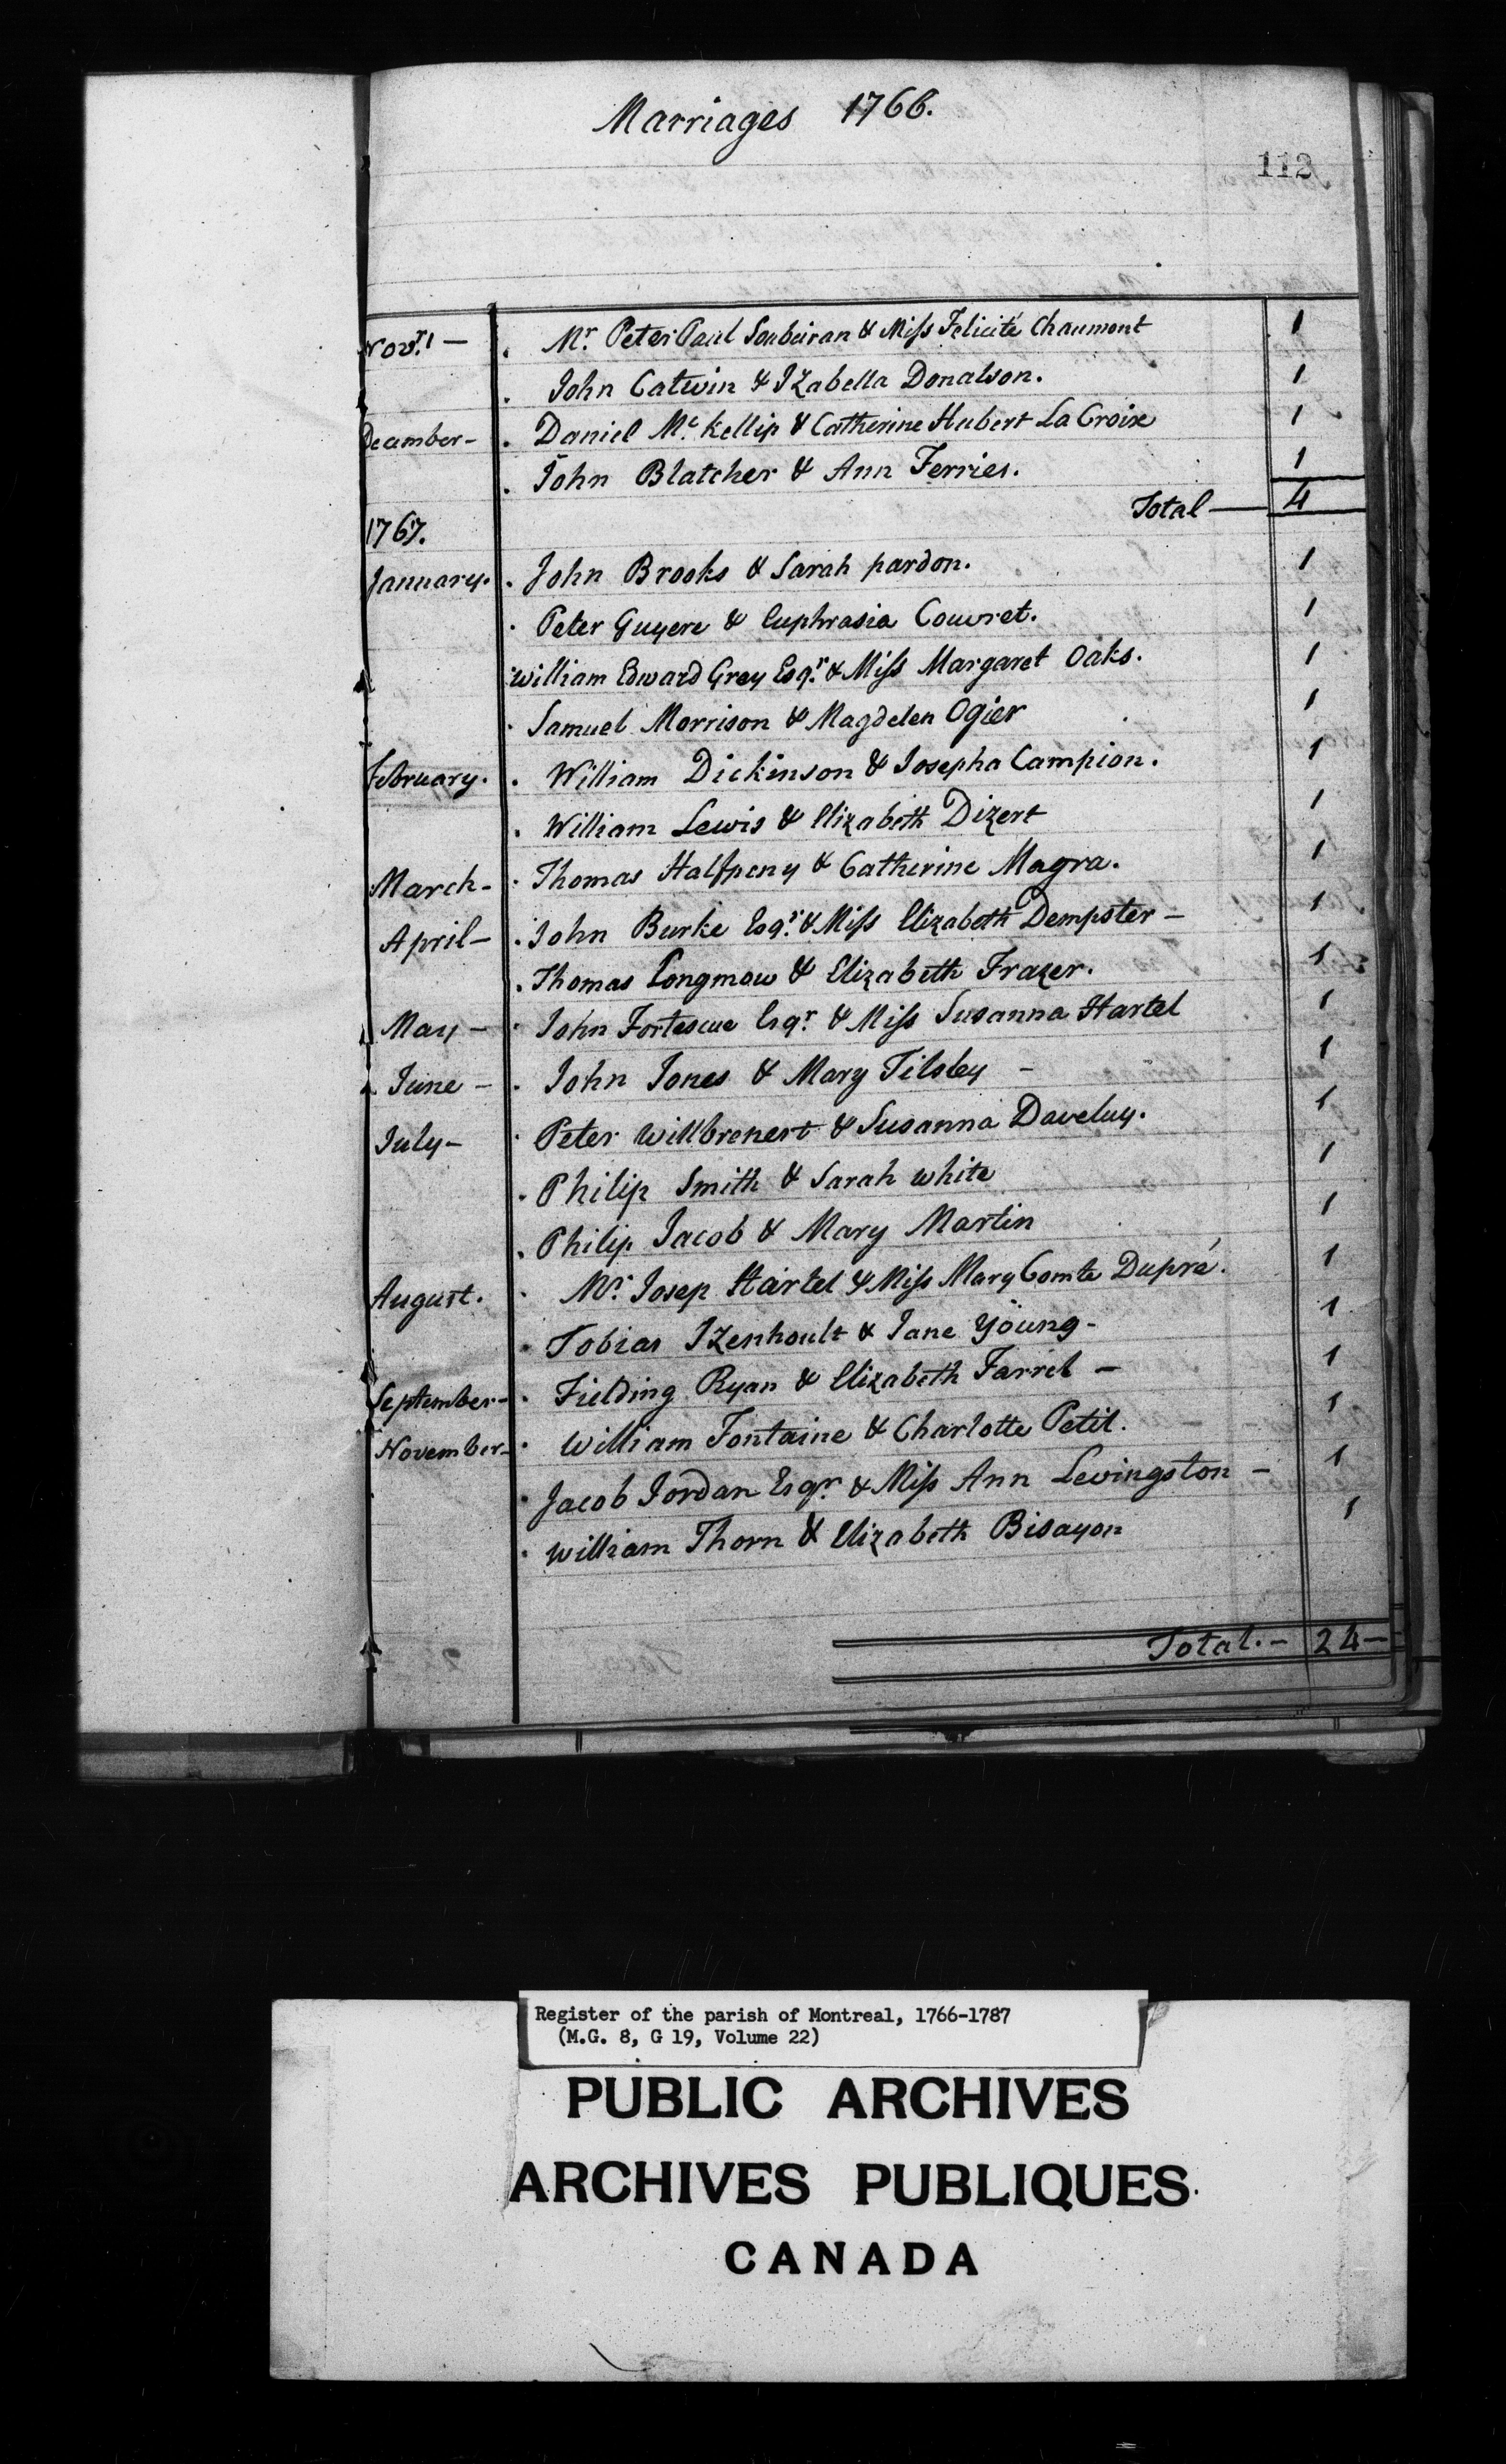 Marriages 1766.
112
Novr. — . Mr. Peter Paul Soubeiran & Miss Felicité Chaumont 1
. John Catwin & Izabella Donalson. 1
December - . Daniel Mc. Kellip & Catherine Hubert La Croix 1
. John Blatcher & Ann Ferries. 1
Total — 4
1767.
January. . John Brooks & Sarah pardon. 1
. Peter Guyere & Euphrasia Couvret. 1
. William Edward Grey Esqr. & Miss Margaret Oaks. 1
. Samuel Morrison & Magdelen Ogier 1
February. . William Dickinson & Josepha Campion. 1
. William Lewis & Elizabeth Dizert 1
March - . Thomas Halfpeny & Catherine Magra. 1
April - . John Burke Esqr. & Miss Elizabeth Dempster - 1
. Thomas Longmow & Elizabeth Frazer. 1
May - . John Fortescue Esqr. & Miss Susanna Hartel 1
June - . John Jones & Mary Tilsley - 1
July - . Peter Willbrenert & Susanna Daveluy. 1
. Philip Smith & Sarah white 1
. Philip Jacob & Mary Martin 1
August. . Mr. Josep Hartel & Miss Mary Comte Dupré. 1
. Tobias Izenhoult & Jane Young - 1
September - . Fielding Ryan & Elizabeth Farrel - 1
November - . William Fontaine & Charlotte Petit. 1
. Jacob Jordan Esqr. & Miss Ann Levingston - 1
. William Thorn & Elizabeth Bisayon 1
Total. - 24 -
Register of the parish of Montreal, 1766-1787
(M.G. 8, G 19, Volume 22)
PUBLIC ARCHIVES
ARCHIVES PUBLIQUES
CANADA